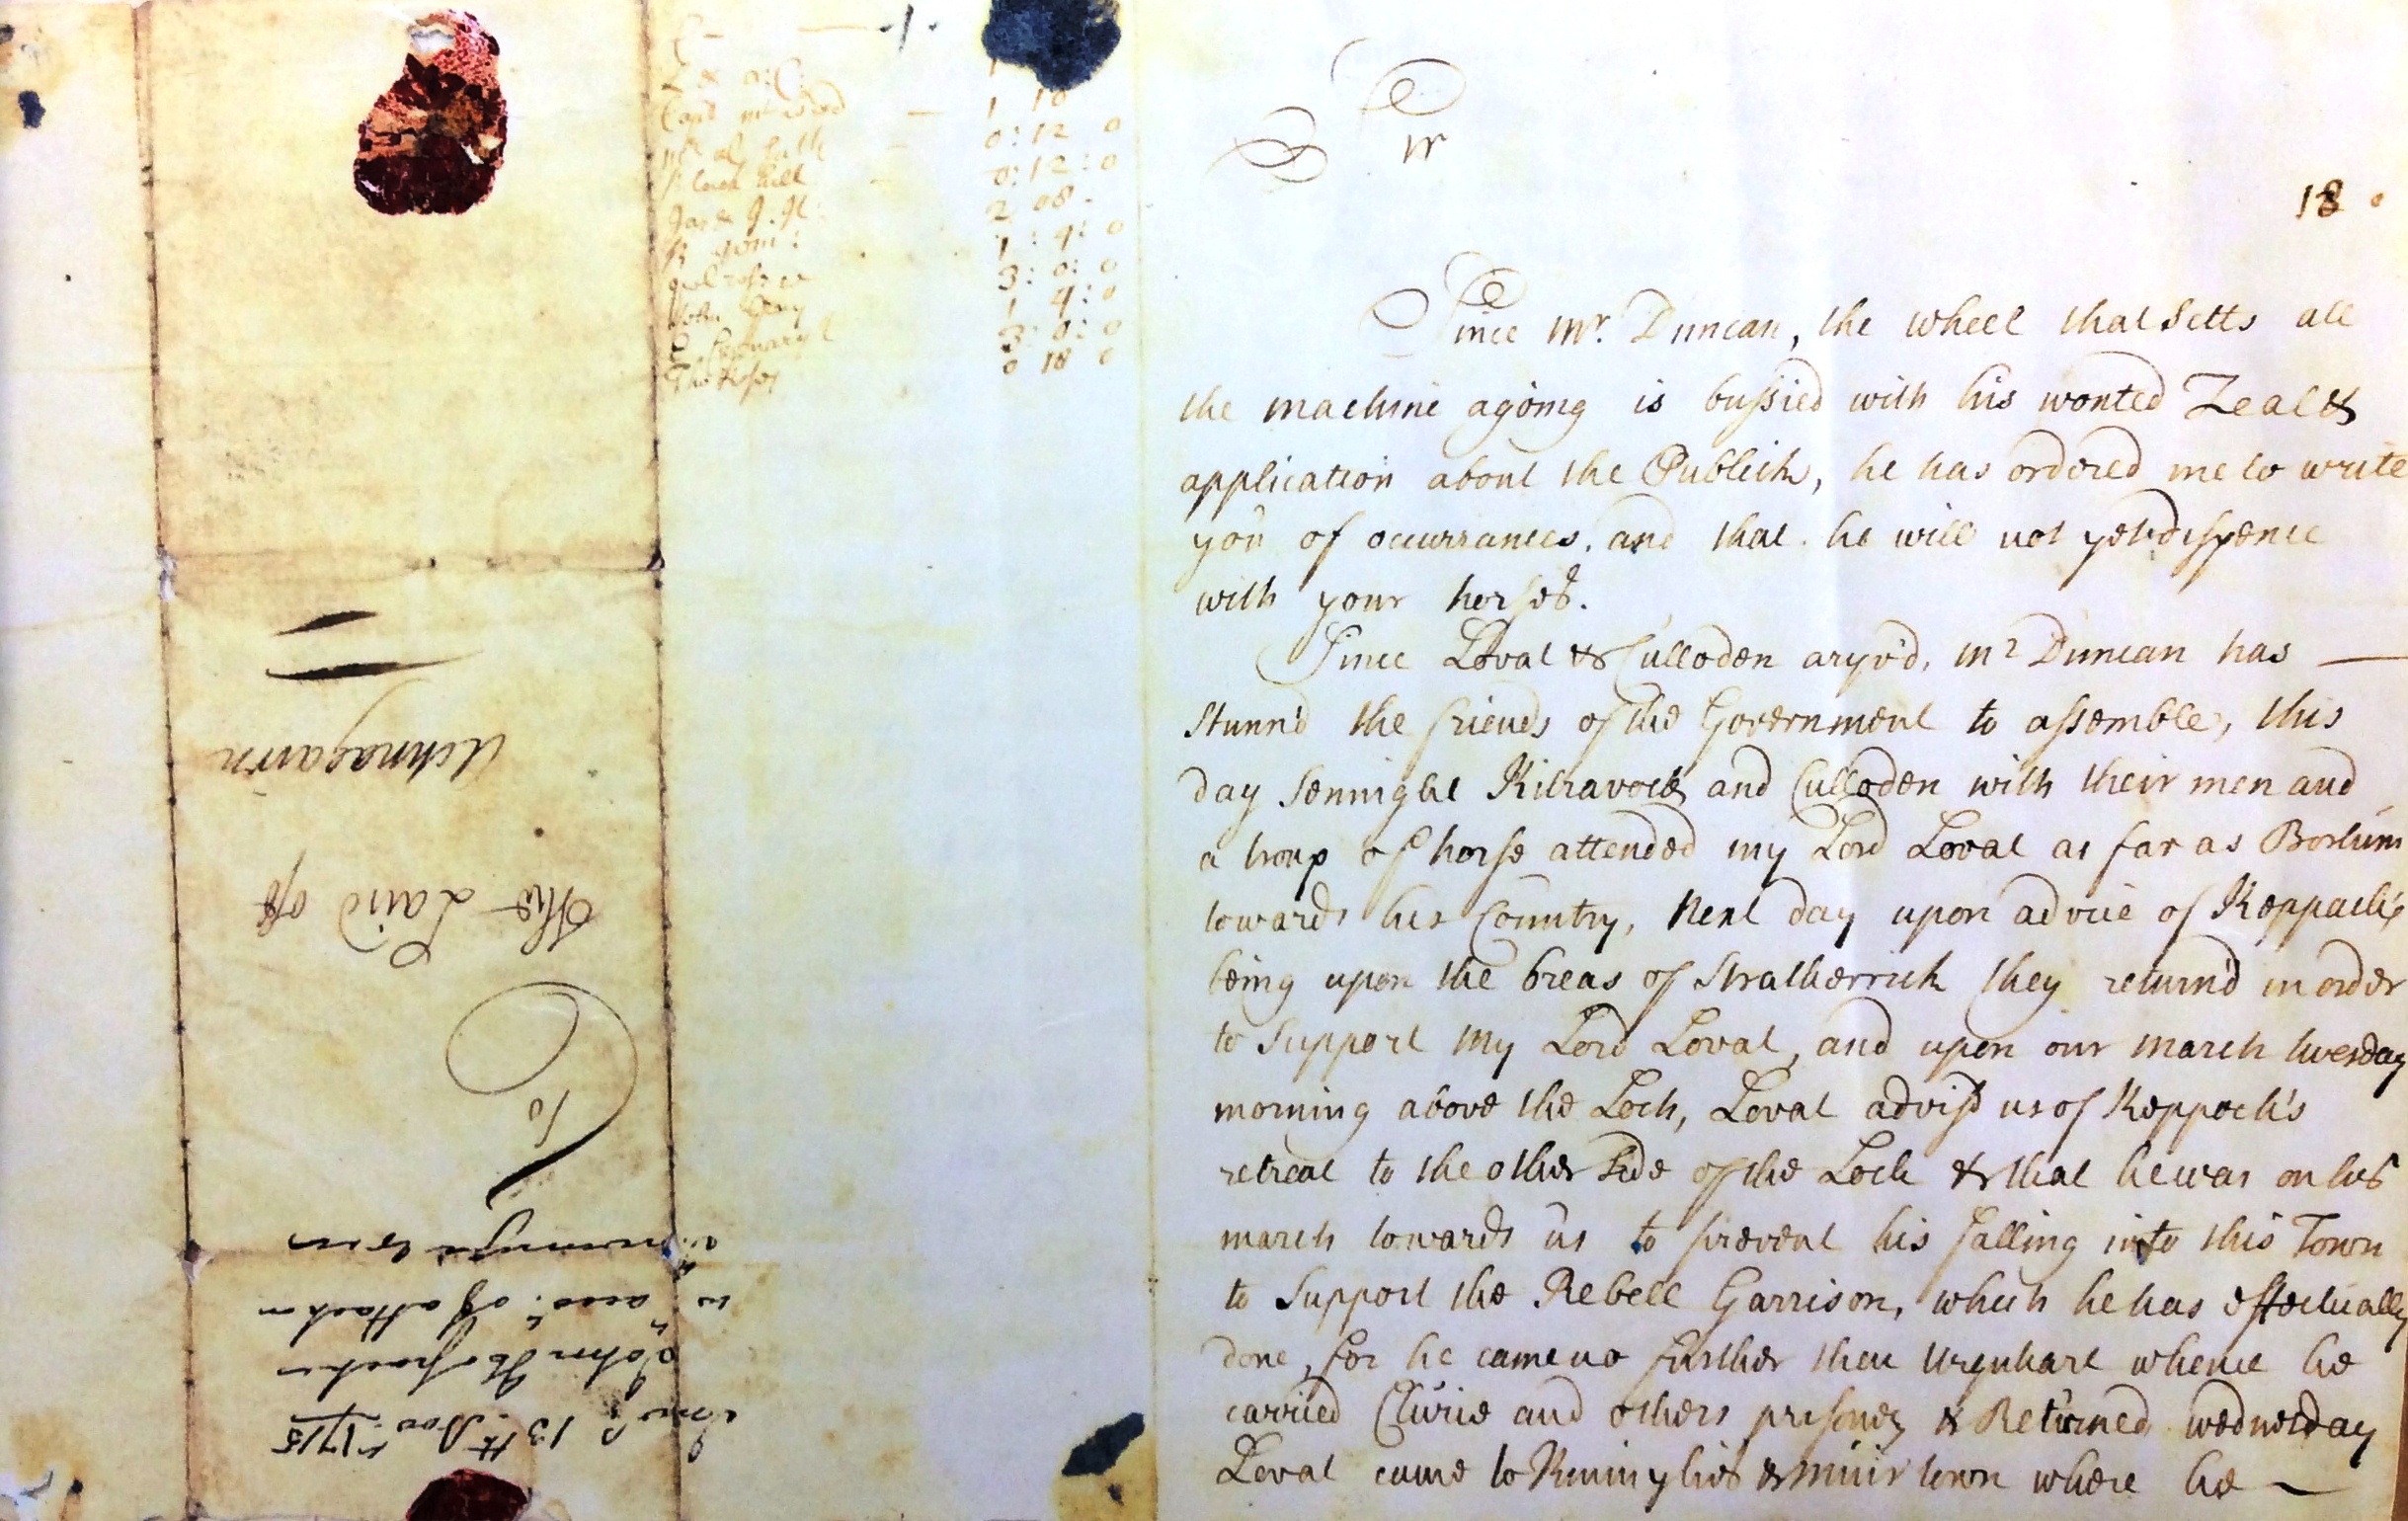 1
10
0: 12 0
0: 12: 0
2 08 -
1: 4: 0
3: 0: 0
John Gray 1 4: 0
3: 0: 0
0 18 0
To
The Laird of
Achnagairn
13th Nov. 1715
Sir
18
Since Mr. Duncan, the wheel that Setts all
the machine agoing is bussied with his wonted Zeal &
application about the Publick, he has ordered me to write
you of occurrances, and that he will not yet dispence
with your horses.
Since Lovat & Culloden aryv'd, Mr Duncan has
Stunn'd the friends of the Government to assemble, this
day Sennight Kilravock and Culloden with their men and
a troup of horse attended my Lord Lovat as far as Borlum
towards his Country, Next day upon advice of Keppach's
being upon the breas of Stratherrick they return'd in order
to Support my Lord Lovat, and upon our march tuesday
morning above the Loch, Lovat advis'd us of Keppoch's
retreat to the other Side of the Loch & that he was on his
march towards us to prevent his falling into this Town
to Support the Rebell Garrison, which he has effectually
done, for he came no further then Urquhart whence he
carried and others & Returned wednesday
Lovat came to & muirtown where he